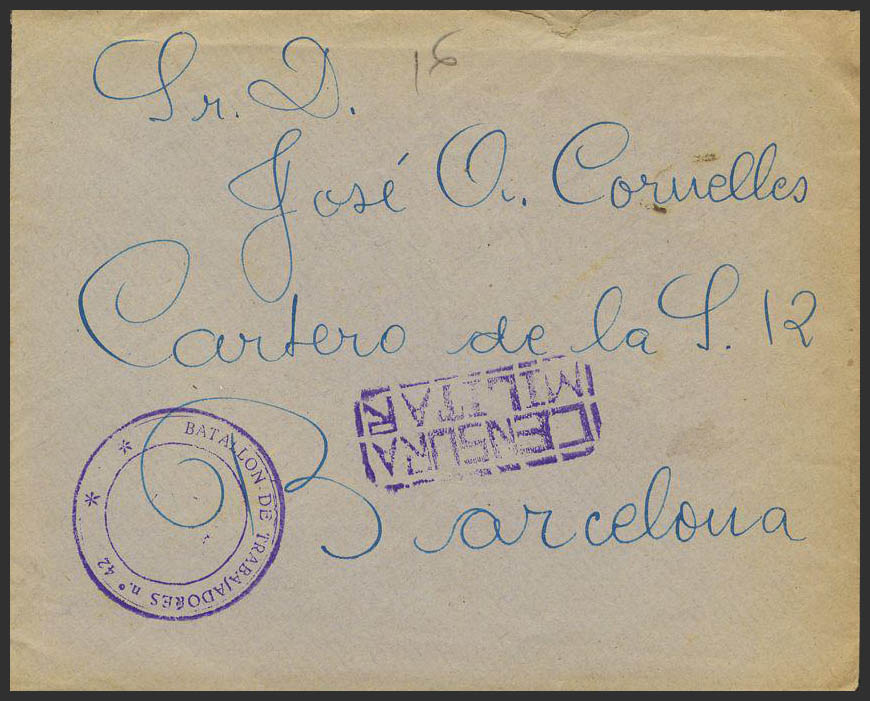 16
Sr. D.
José O. Cornelles
Cartero de la S. 12
Barcelona
CENSURA
MILITAR
BATALLON DE TRABAJADORES n.º 42